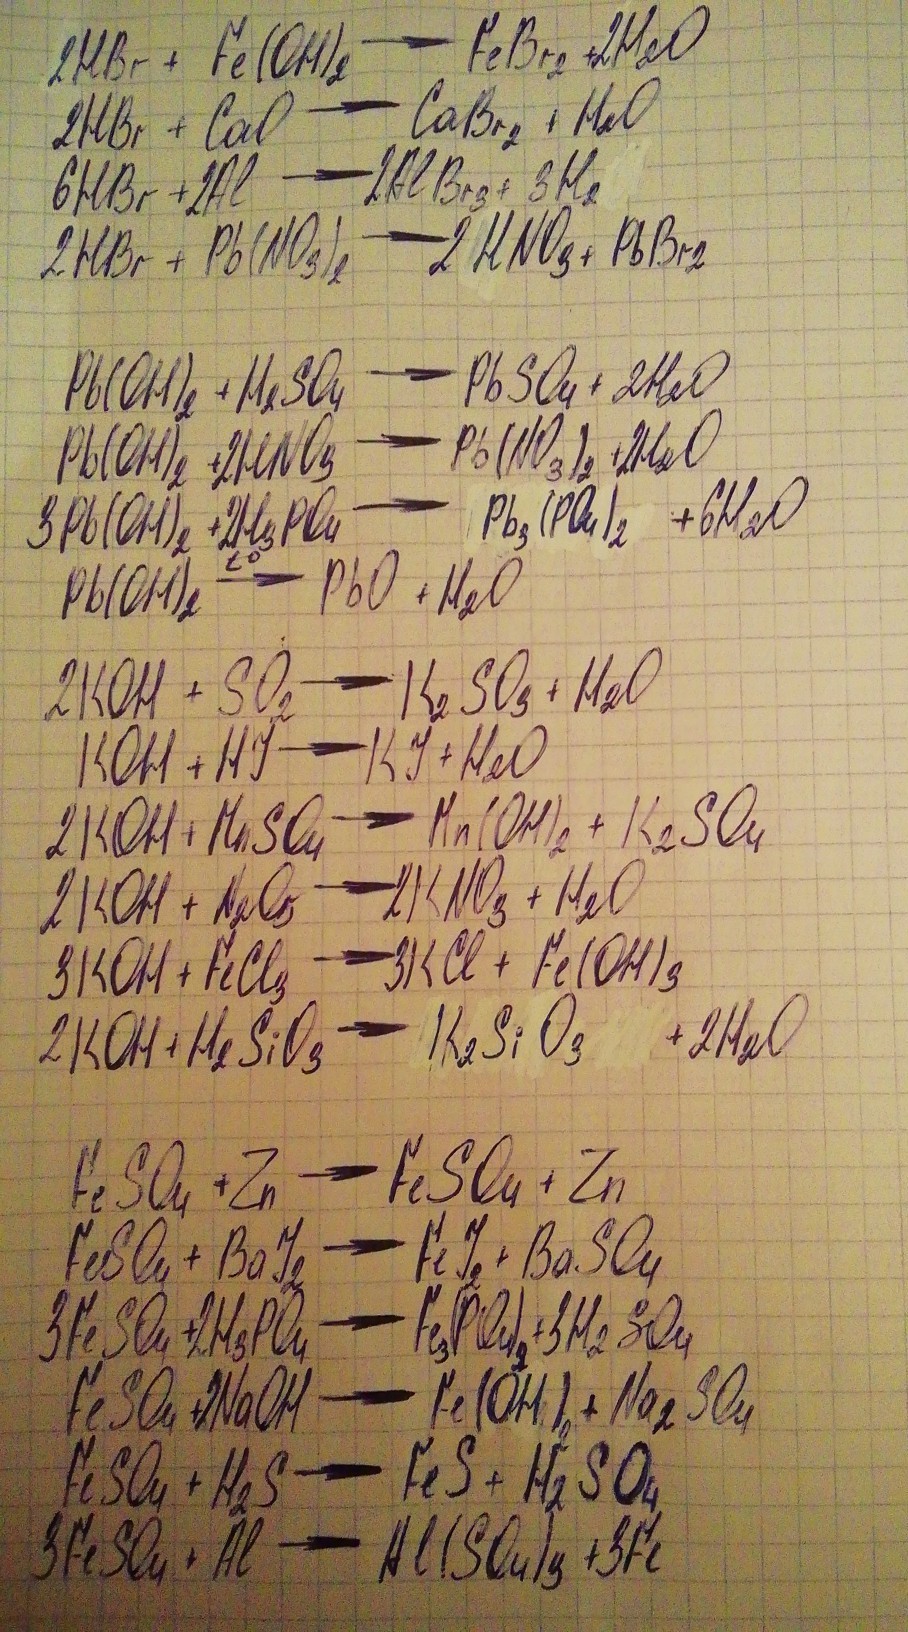 2HBr + Fe(OH)₂ → FeBr₂ + 2H₂O
2HBr + CaO → CaBr₂ + H₂O
6HBr + 2Al → 2AlBr₃ + 3H₂
2HBr + Pb(NO₃)₂ → 2HNO₃ + PbBr₂
Pb(OH)₂ + H₂SO₄ → PbSO₄ + 2H₂O
Pb(OH)₂ + 2HNO₃ → Pb(NO₃)₂ + 2H₂O
3Pb(OH)₂ + 2H₃PO₄ → Pb₃(PO₄)₂ + 6H₂O
Pb(OH)₂ t° → PbO + H₂O
2KOH + SO₂ → K₂SO₃ + H₂O
KOH + HJ → KJ + H₂O
2KOH + MnSO₄ → Mn(OH)₂ + K₂SO₄
2KOH + N₂O₅ → 2KNO₃ + H₂O
3KOH + FeCl₃ → 3KCl + Fe(OH)₃
2KOH + H₂SiO₃ → K₂SiO₃ + 2H₂O
FeSO₄ + Zn → FeSO₄ + Zn
FeSO₄ + BaJ₂ → FeJ₂ + BaSO₄
3FeSO₄ + 2H₃PO₄ → Fe₃(PO₄)₂ + 3H₂SO₄
FeSO₄ + 2NaOH → Fe(OH)₂ + Na₂SO₄
FeSO₄ + H₂S → FeS + H₂SO₄
3FeSO₄ + Al → Al(SO₄)₃ + 3Fe